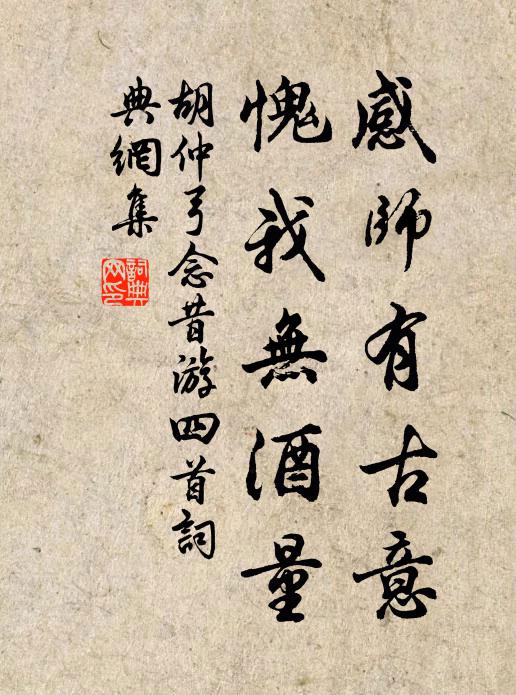 感師有古意
愧我無酒量
胡仲弓念昔游四首詞
典網集
詞典
网印